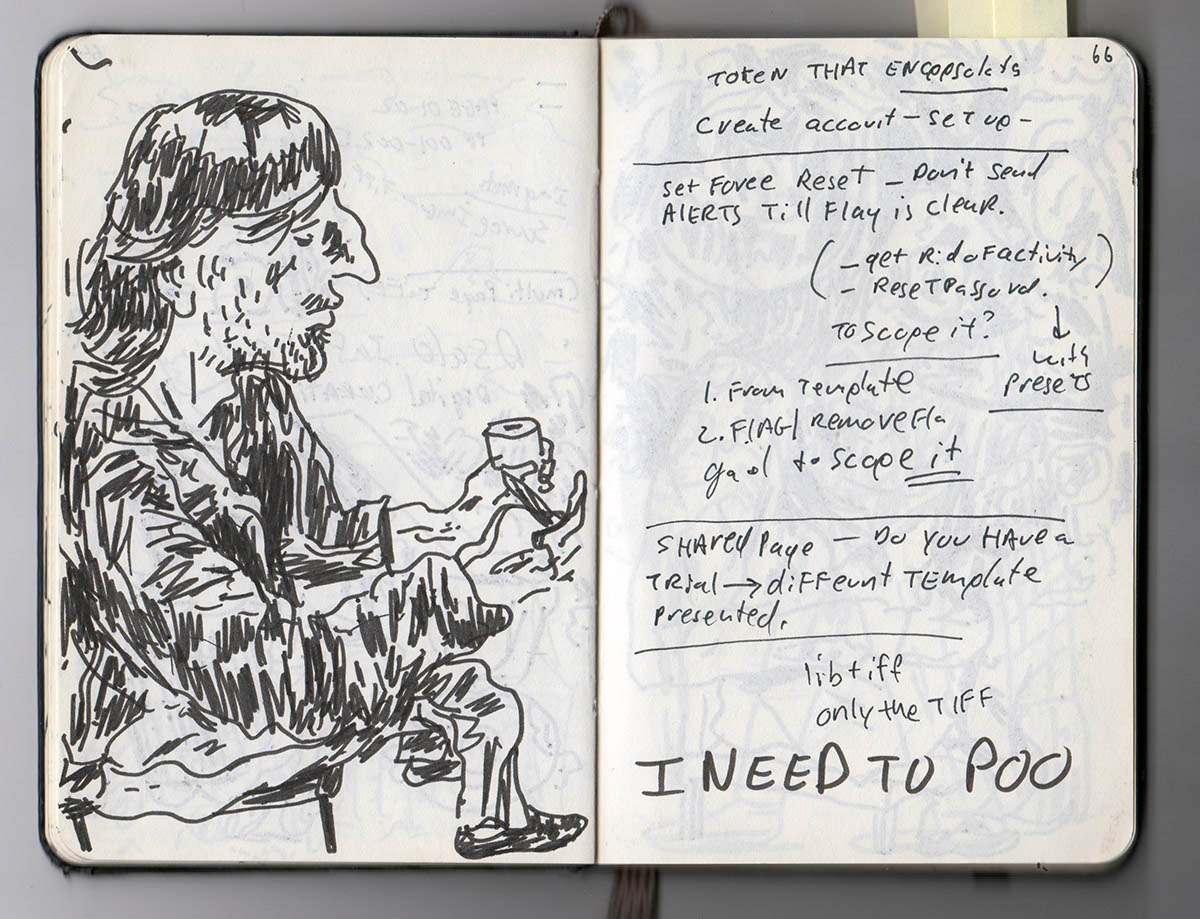 66
TOKEN THAT ENCApsolats
Create account - set up -
set Force Reset - Don't send
AlERTS Till Flag is Clear.
( - get Rid of activity )
- Reset Passord.
To Scope it?
with
presets
1. From Template
2. FlAG/ Remove Fla
goal to scope it
SHARed Page - Do You HAVE a
TRial → different TEmplate
presented.
libtiff
only the TIFF
I NEED TO POO